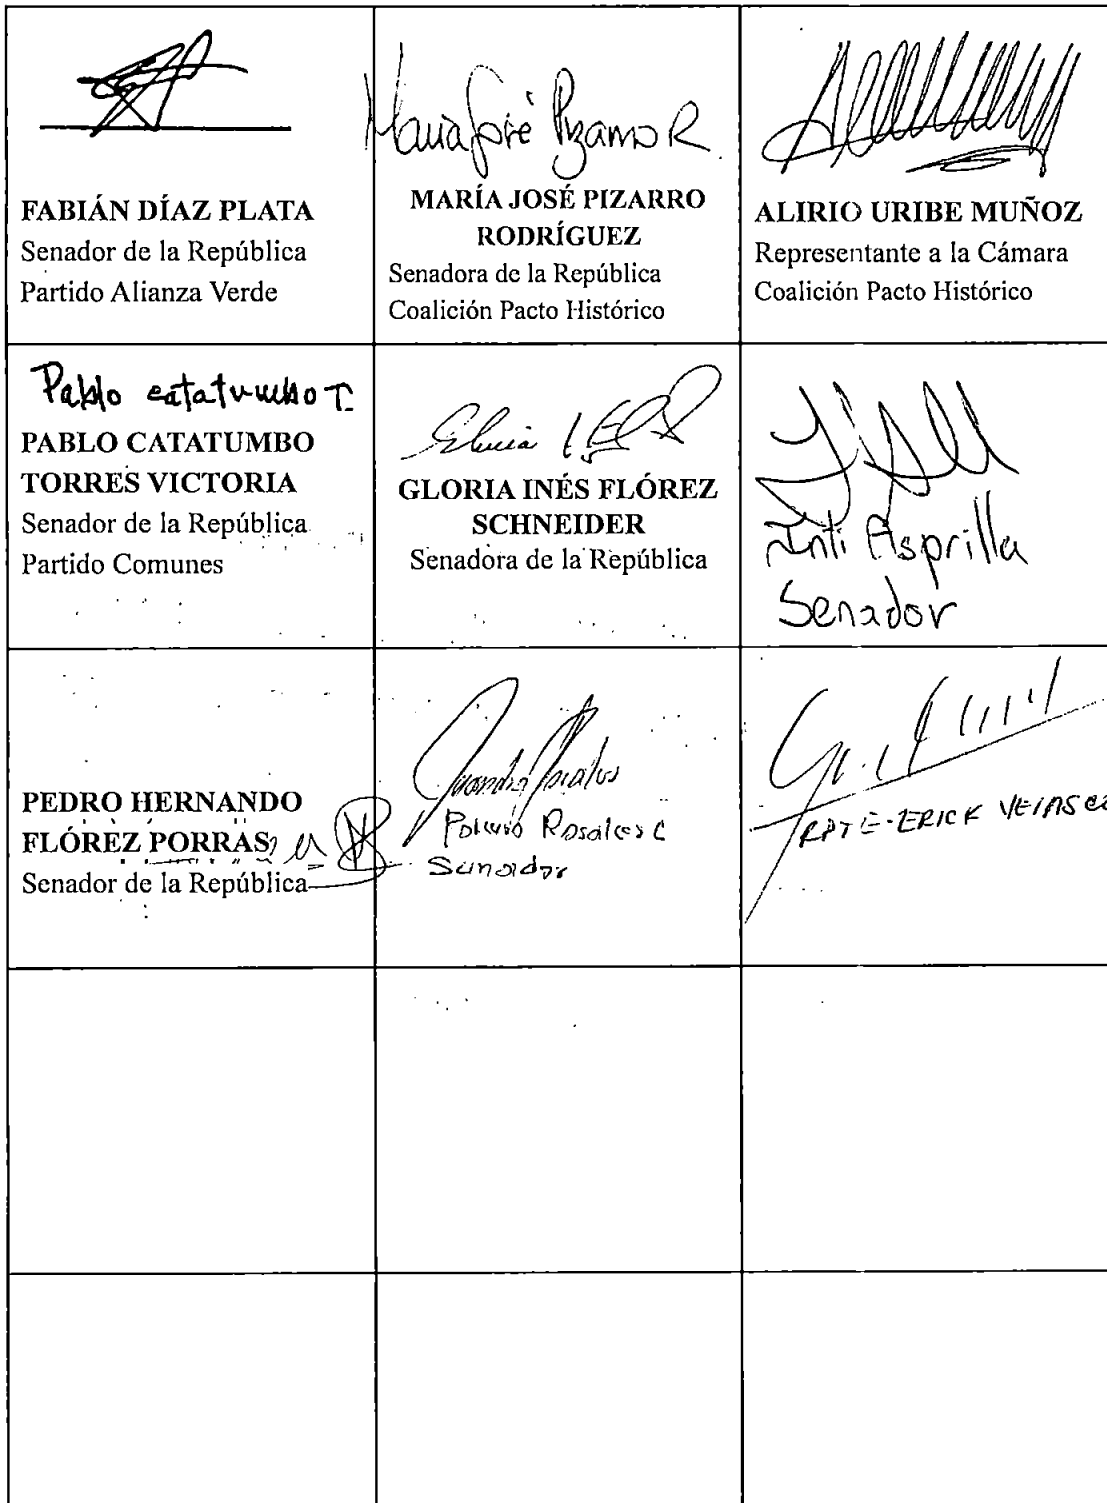 Maria José Pizarro R
FABIÁN DÍAZ PLATA
Senador de la República
Partido Alianza Verde
MARÍA JOSÉ PIZARRO
RODRÍGUEZ
Senadora de la República
Coalición Pacto Histórico
ALIRIO URIBE MUÑOZ
Representante a la Cámara
Coalición Pacto Histórico
Pablo catatumbo T.
PABLO CATATUMBO
TORRES VICTORIA
Senador de la República
Partido Comunes
GLORIA INÉS FLÓREZ
SCHNEIDER
Senadora de la República
Inti Asprilla
Senador
PEDRO HERNANDO
FLÓREZ PORRAS
Senador de la República
Rosales C
Senador
RPTE-ERICK VELASCO